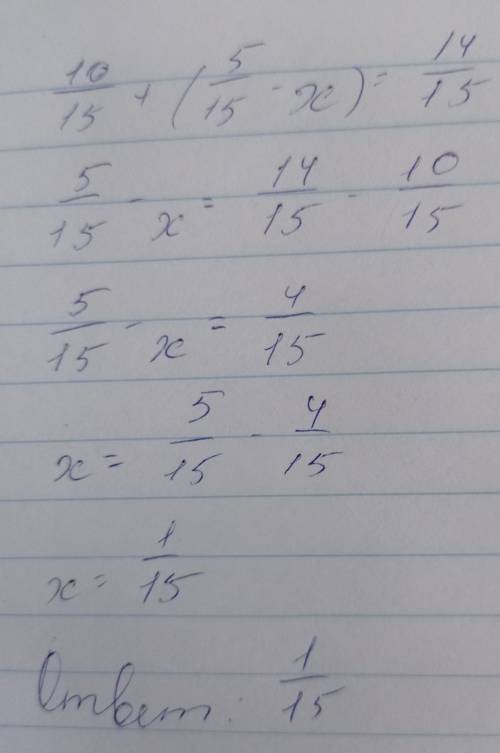 10/15 + (5/15 - x) = 14/15
5/15 - x = 14/15 - 10/15
5/15 - x = 4/15
x = 5/15 - 4/15
x = 1/15
Ответ: 1/15